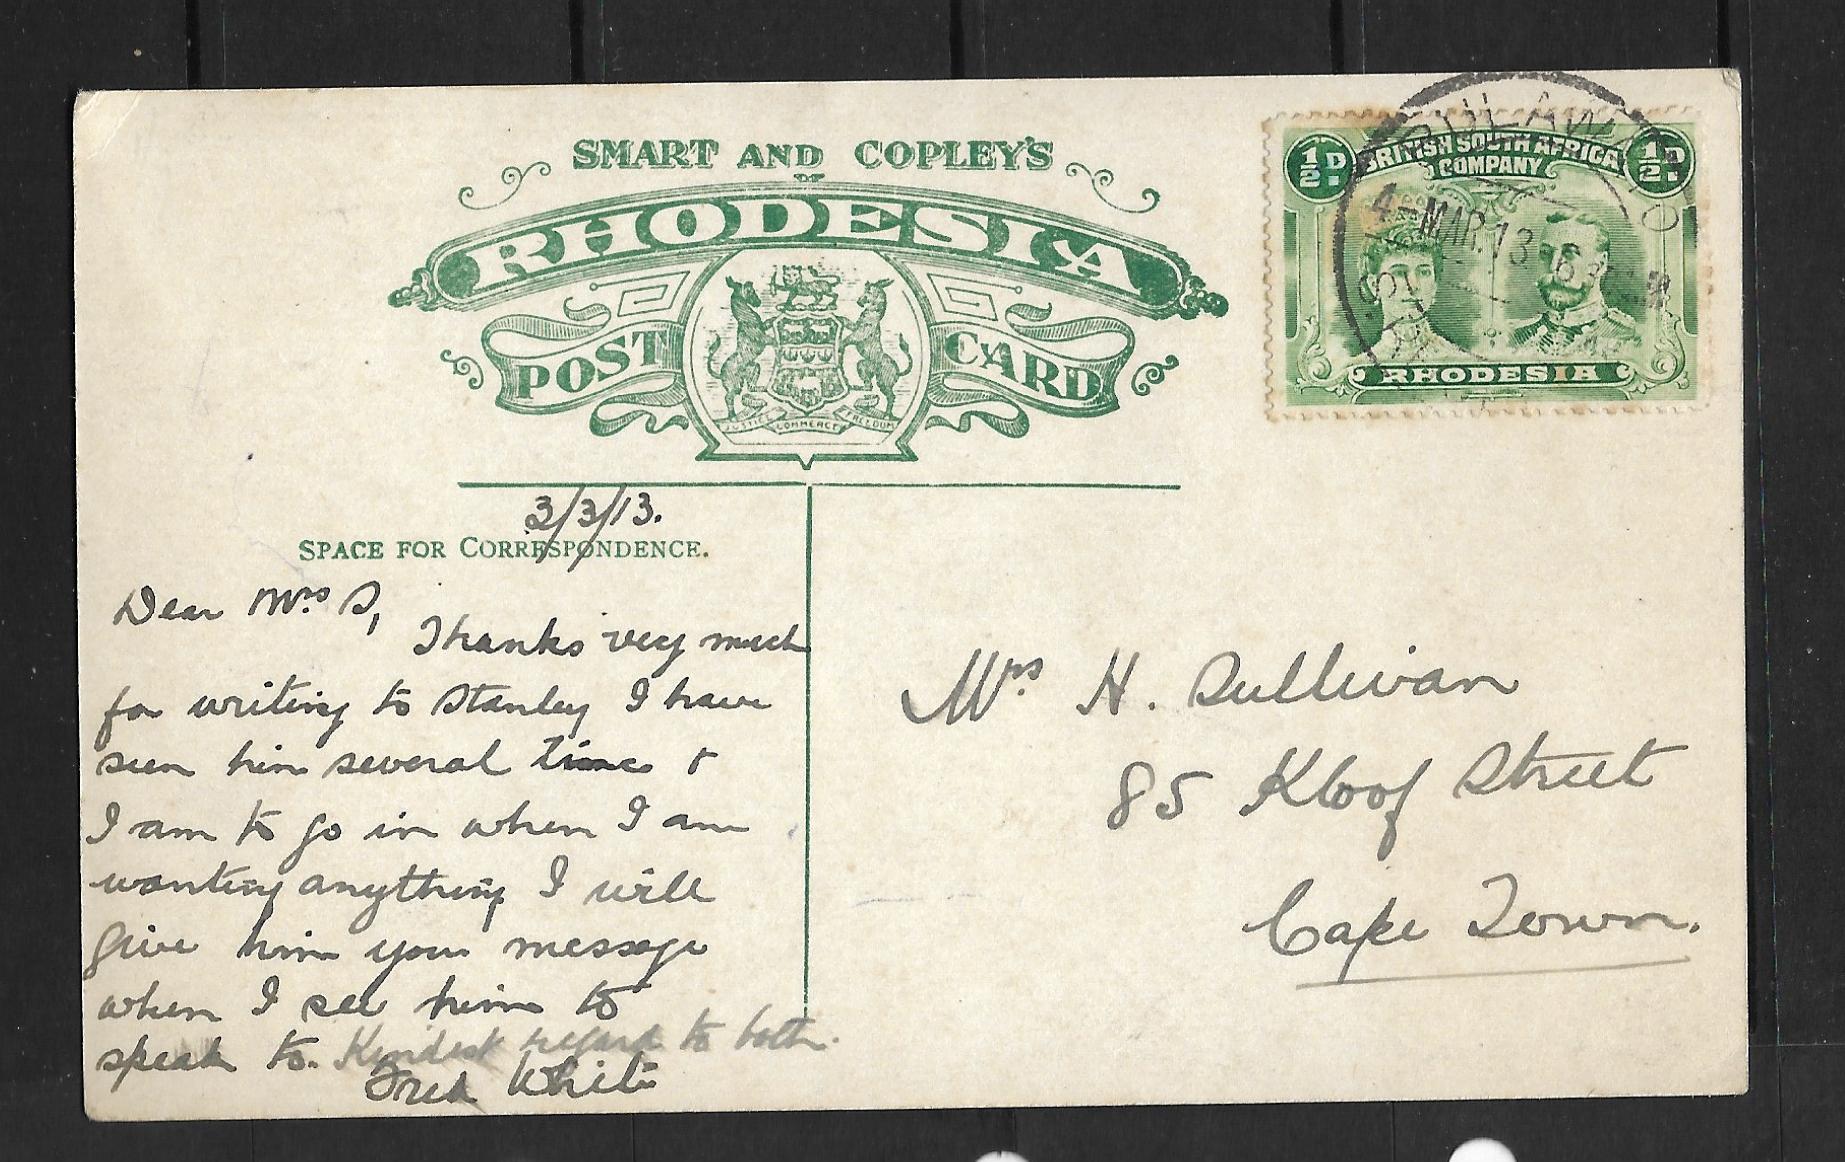 SMART AND COPLEY'S
RHODESIA
POST CARD
JUSTICE COMMERCE FREEDOM
½D. BRITISH SOUTH AFRICA COMPANY ½D.
RHODESIA
BULAWAYO
4-MAR.13
3/3/13.
SPACE FOR CORRESPONDENCE.
Dear Mrs S,
Thanks very much
for writing to Stanley I have
seen him several times &
I am to go in when I am
wanting anything I will
give him your message
when I see him to
speak to. Kindest regard to both.
Fred White
Mrs H. Sullivan
85 Kloof Street
Cape Town.